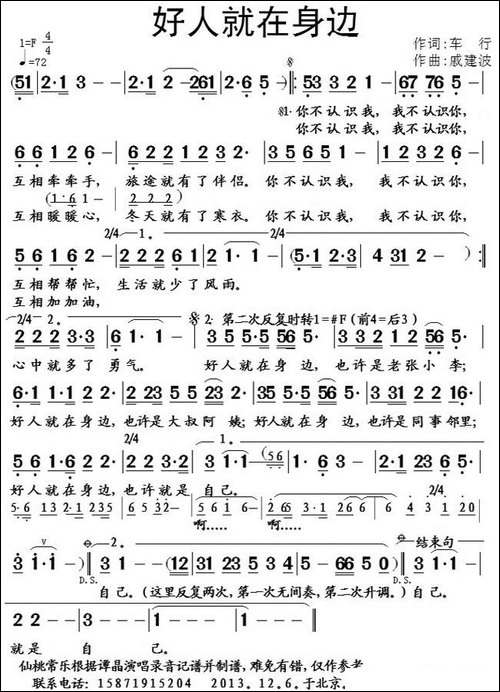 好人就在身边
1=F 4/4
♩=72
作词:车 行
作曲:戚建波
(51 | 2·1 3 -- | 2·1 2-261 | 2-65·) ‖: 53 321 2· | 67 765· |
𝄋1·你不认识我, 我不认识你,
你不认识我, 我不认识你,
6 6 1 2 6 - | 6 2 2 1 2 3 2· | 3 5 6 5 1· | 1 2 3 2 6· |
互相牵牵手, 旅途就有了伴侣。你不认识我, 我不认识你,
(1·6 1 - | 2 2 2)
互相暖暖心, 冬天就有了寒衣。你不认识我, 我不认识你,
2/4 1. 2/4
5 6 1 6 2 - | 2 2 2 6 1 2 | 1· 1 - | (5·1 2·3 | 4 31 2 - :‖
互相帮帮忙, 生活就少了风雨。
互相加加油,
2/4 2. 𝄋 2· 第二次反复时转1=#F(前4=后3)
2 2 2 3·3 | 6 1· 1 - | 3 5 5·5 56 | 3 2 3 5 6 5· |
心中就多了 勇气。 好人就在身 边,也许是老张小 李;
6·1 1·1 2· | 2 23 55 23 | 35·5 5 56 | 3 31 2 2 16· |
好人就在身边,也许是大叔阿 姨;好人就在身 边,也许是同事邻里;
2/4 1.
5 6 1·6 2 2· | 2 2 2 3 2 | 3 1·1 (56 | 1·6 3 - | 2·1 23 6 5· |
好人就在身边,也许就是 自己。
2/4
啊..... 啊.....
2. 结束句
3 i·i -) ‖ 3 1·1 - | (12 31 23 5 3 4 | 5 - 66 5 0) ‖ 3 1·1 - |
D.S. D.S.
自己。(这里反复两次,第一次无间奏,第二次升调。) 自己。
2 2 - - | 3 - - - | 1 - - - | 1 - - - ‖
就是 自 己。
仙桃常乐根据谭晶演唱录音记谱并制谱,难免有错,仅作参考
联系电话: 15871915204 2013.12.6.于北京.